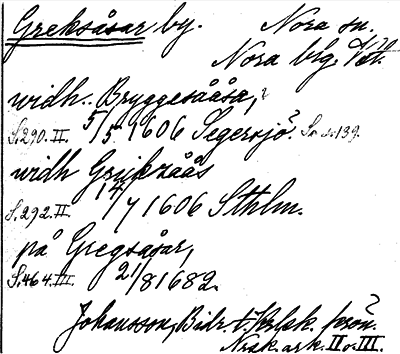 Greksåsar by. Nora sn.
Nora brg. Vstl.
widh.. Bryggesååsa,
S.290.II. 5/5 1606 Segersjö? Sv s. 139.
widh Grijkzåås
S.292.II. 14/7 1606 Sthlm.
på Gregsåsar,
S.464.III. 21/8 1682.
Johansson, Bidr. t.
N:ak. ark. II o. III.